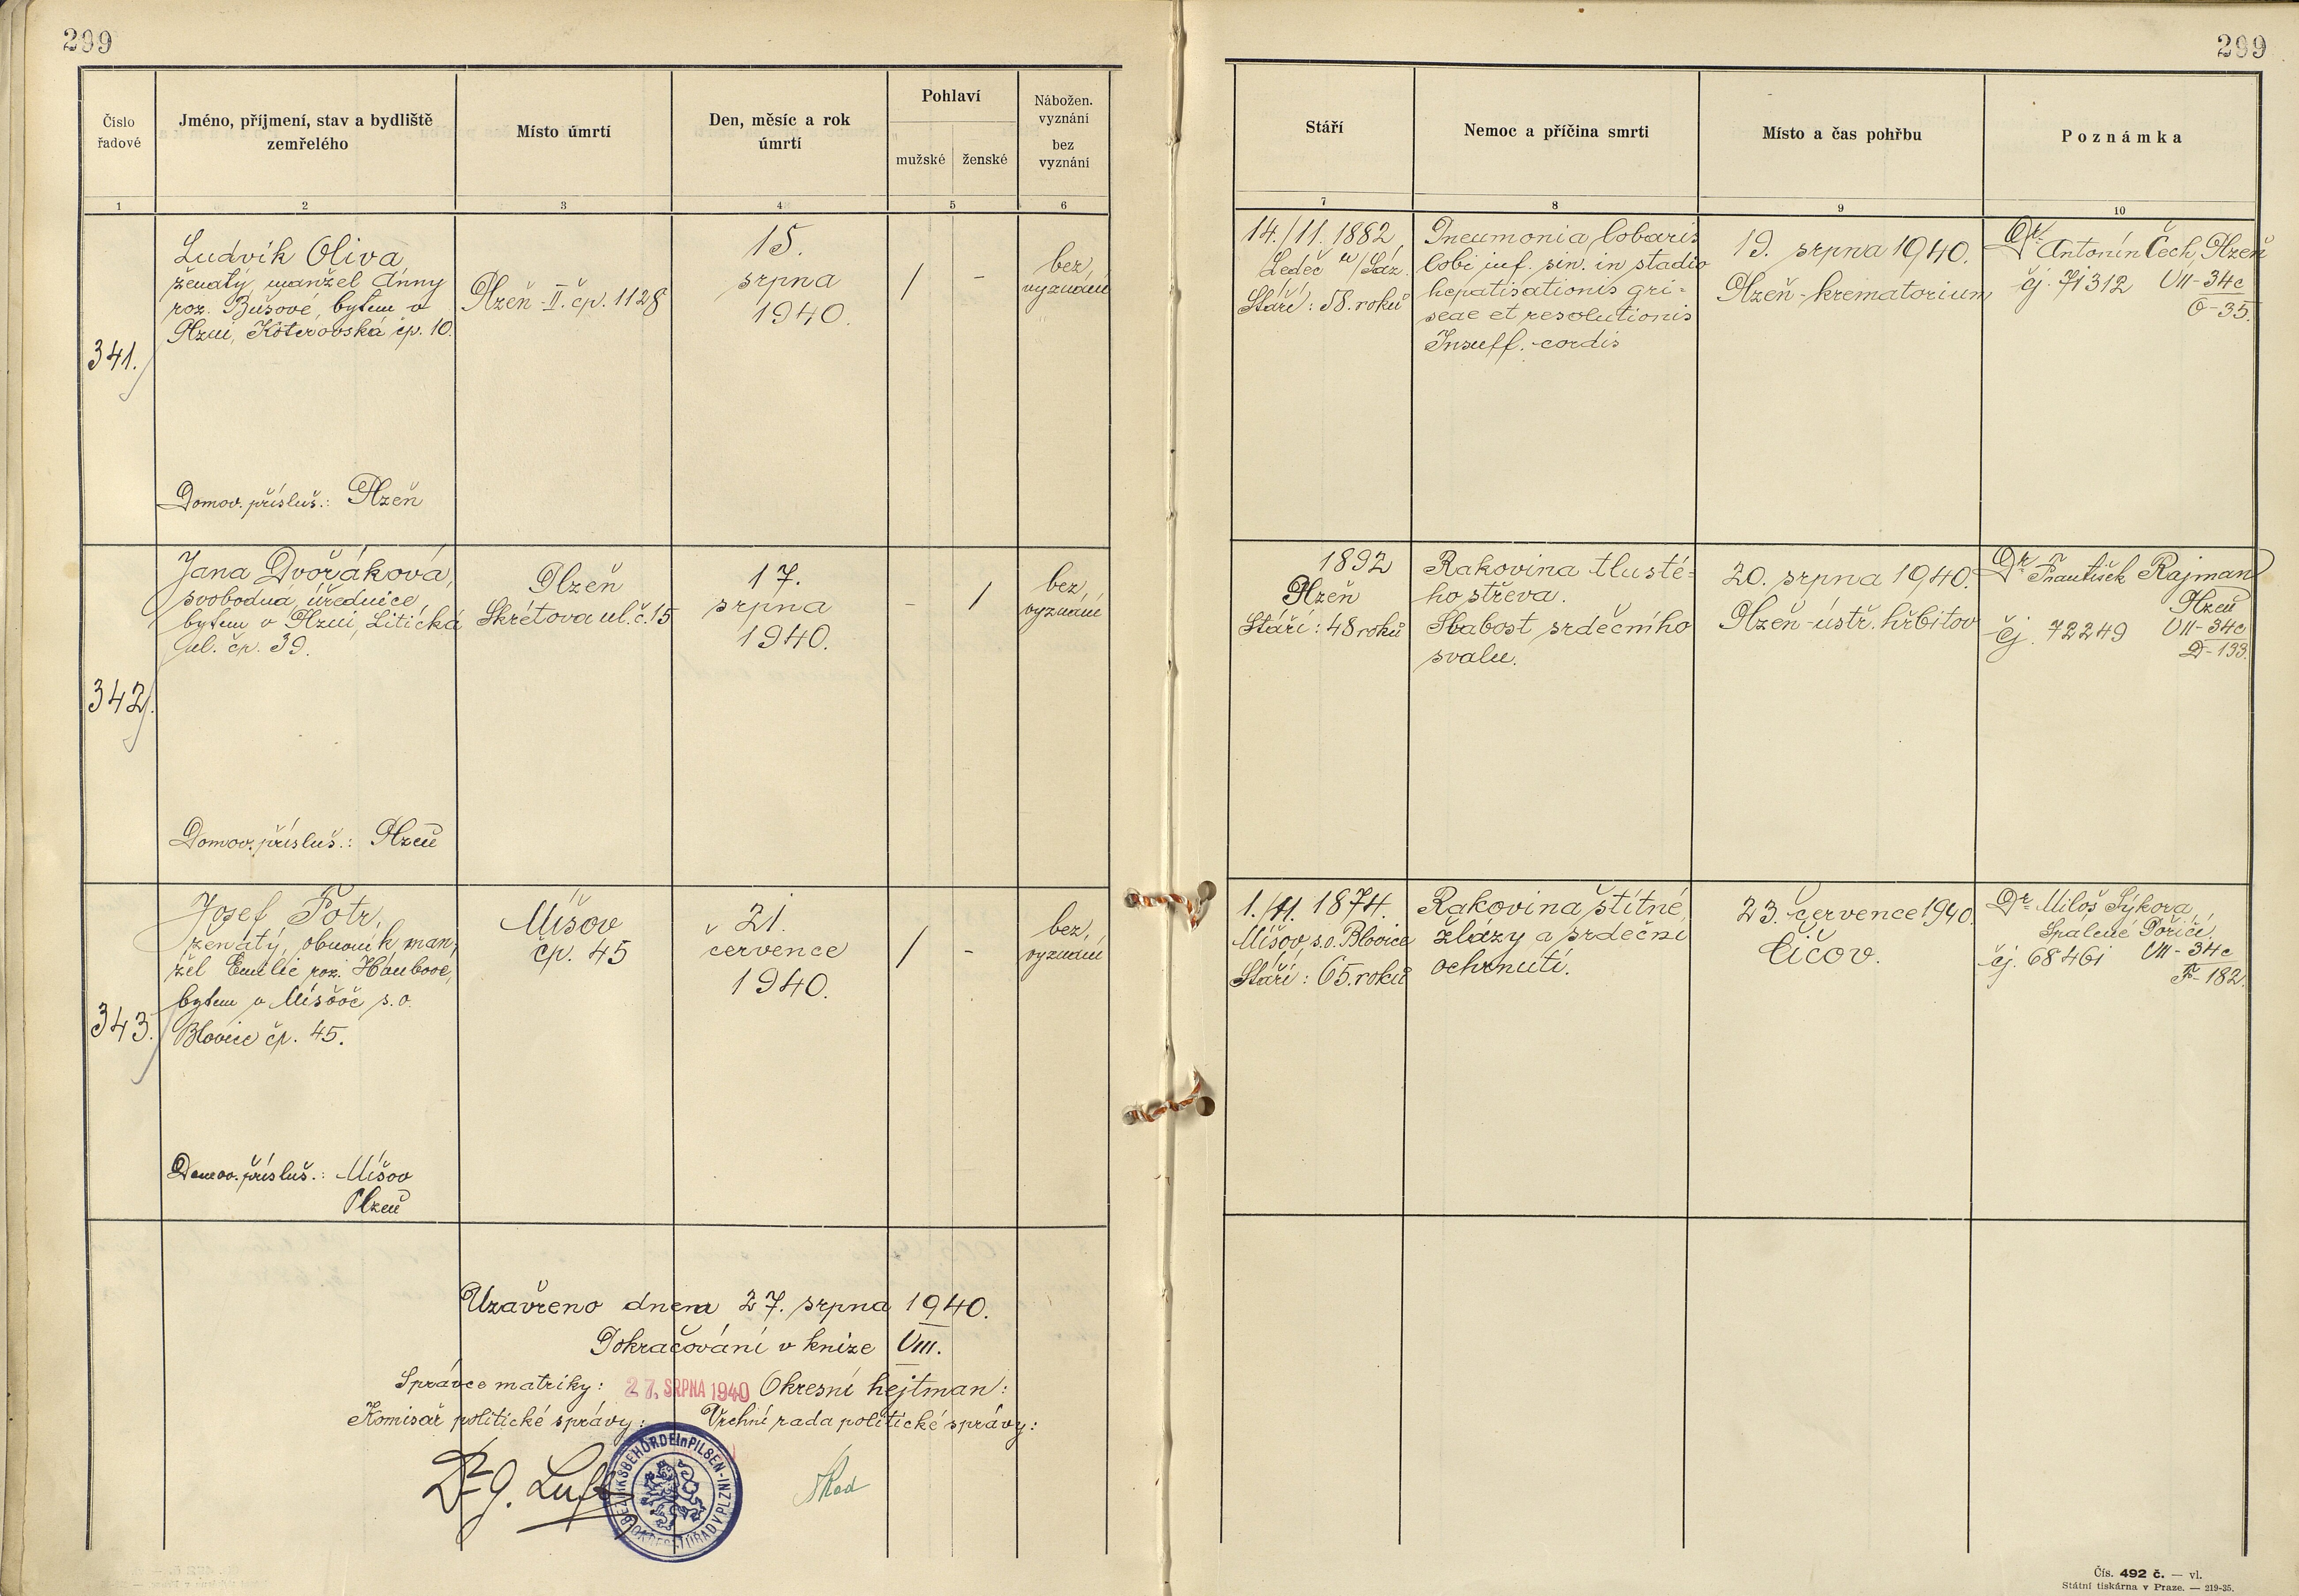 299
299
Číslo
řadové
Jméno, příjmení, stav a bydliště
zemřelého
Místo úmrtí
Den, měsíc a rok
úmrtí
Pohlaví
mužské
ženské
Nábožen.
vyznání
bez
vyznání
Stáří
Nemoc a příčina smrti
Místo a čas pohřbu
Poznámka
1
2
3
4
5
6
7
8
9
10
341.
Ludvík Oliva
ženatý, manžel Anny
roz. Bušové, bytem v
Plzni, Koterovská čp. 10.
Domov. přísluš.: Plzeň
Plzeň-II. čp. 1128
15.
srpna
1940.
/
-
bez
vyznání
14./11. 1882
Ledeč n/Sáz.
Stáří: 58. roků
Pneumonia lobaris
lobi inf. sin. in stadio
hepatisationis gri=
seae et resolutionis
Insuff. cordis
19. srpna 1940.
Plzeň-krematorium
Dr. Antonín Čech, Plzeň
čj. 71312 VII-34c
O-35.
342.
Jana Dvořáková,
svobodná úřednice
bytem v Plzni, Litická
ul. čp. 39.
Domov. přísluš.: Plzeň
Plzeň
Skrétova ul. č. 15
17.
srpna
1940.
-
/
bez
vyznání
1892
Plzeň
Stáří: 48 roků
Rakovina tlusté=
ho střeva.
Slabost srdečního
svalu.
20. srpna 1940.
Plzeň-ústř. hřbitov
Dr František Rajman
Plzeň
čj. 72249 VII-34c
D-133.
343.
Josef Fotr,
ženatý, obuvník, man-
žel Emilie roz.
bytem v Míšově s.o.
Blovice čp. 45.
Domov. přísluš.: Míšov
Plzeň
Míšov
čp. 45
21.
července
1940.
/
-
bez
vyznání
1./11. 1874.
Míšov, s.o. Blovice
Stáří: 65. roků
Rakovina štítné
žlázy a srdeční
ochrnutí.
23. července 1940
Číčov.
Dr Miloš Sýkora,
Spálené Poříčí,
čj. 68461 VII-34c
F-182.
Uzavřeno dnem 27. srpna 1940.
Pokračování v knize VIII.
Správce matriky: 27. SRPNA 1940 Okresní hejtman:
Komisař politické správy: Vrchní rada politické správy:
BEZIRKSBEHÖRDE in PILSEN - OKRESNÍ ÚŘAD V PLZNI
Čís. 492 č. — vl.
Státní tiskárna v Praze. — 219-35.